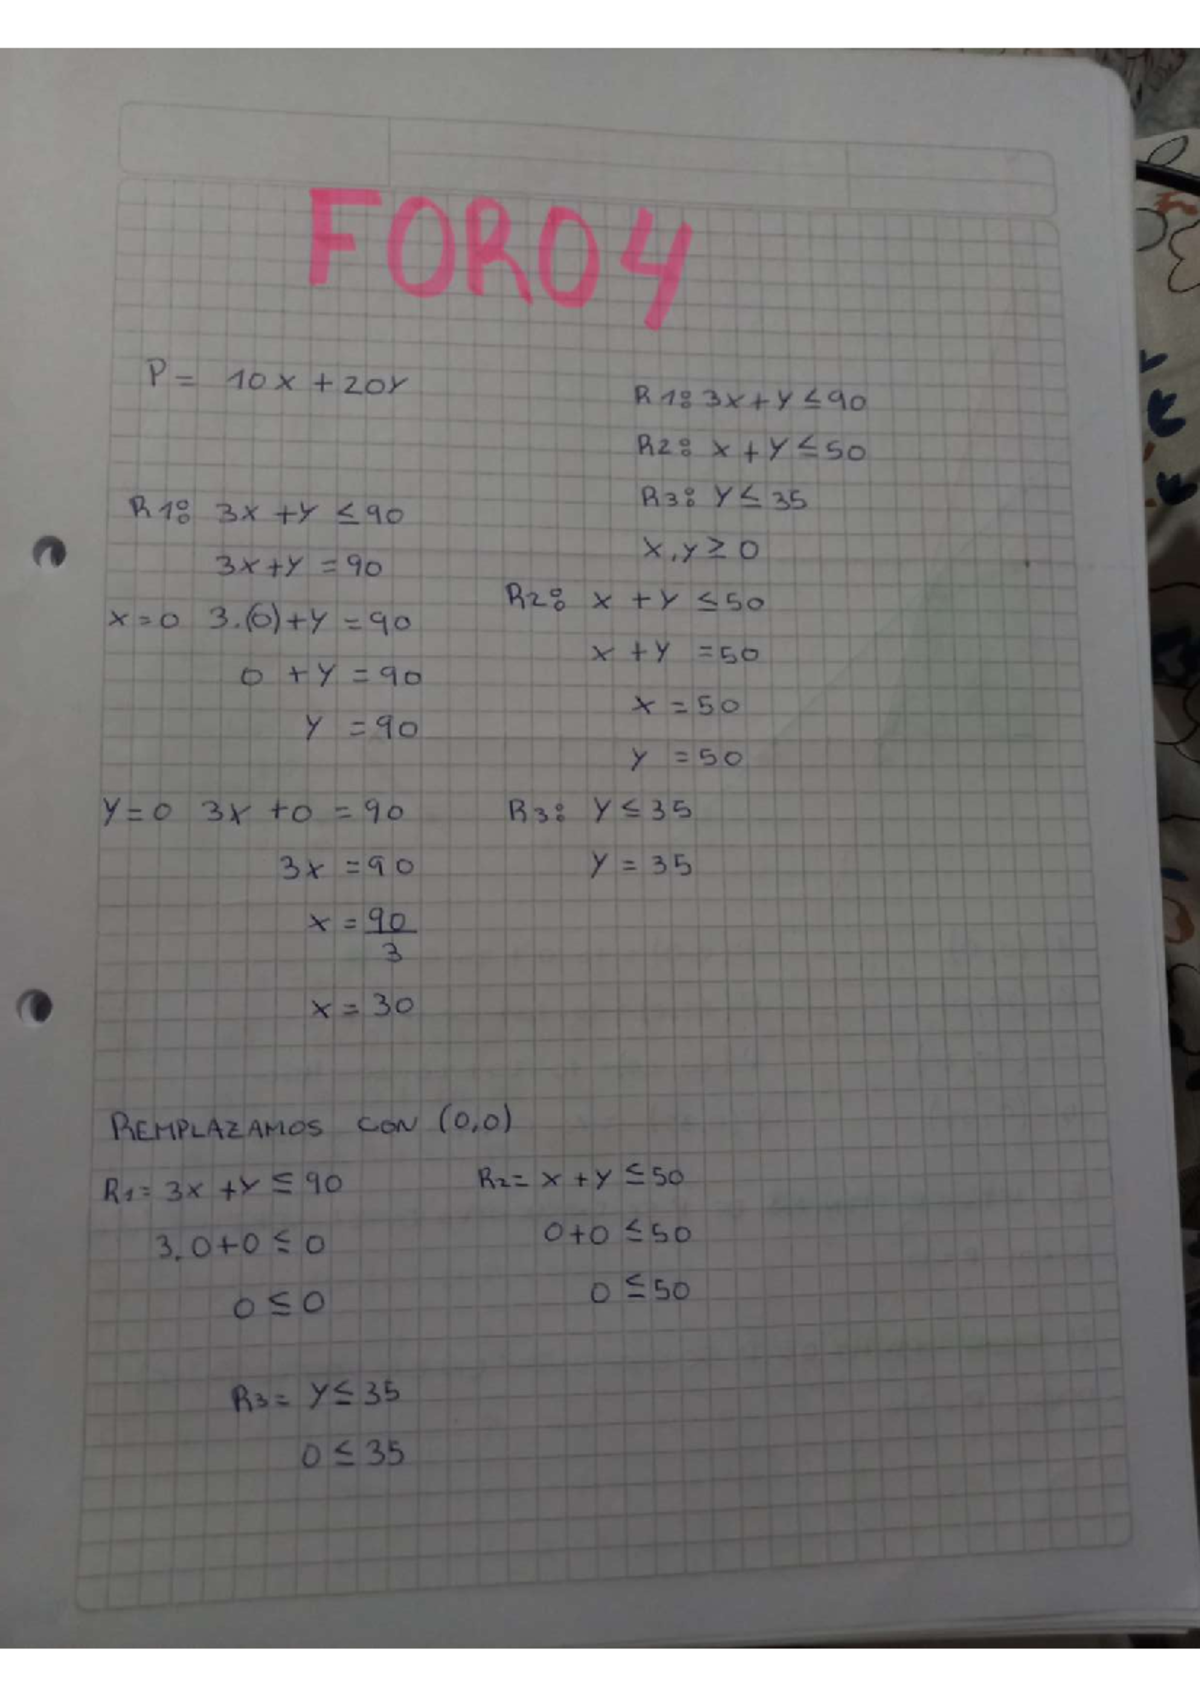 FORO4
P = 10x + 20y
R1: 3x + y ≤ 90
R2: x + y ≤ 50
R3: y ≤ 35
x, y ≥ 0
R1: 3x + y ≤ 90
3x + y = 90
x = 0 3.(0) + y = 90
0 + y = 90
y = 90
y = 0 3x + 0 = 90
3x = 90
x = 90/3
x = 30
R2: x + y ≤ 50
x + y = 50
x = 50
y = 50
R3: y ≤ 35
y = 35
REMPLAZAMOS CON (0,0)
R1 = 3x + y ≤ 90
3.0 + 0 ≤ 0
0 ≤ 0
R2 = x + y ≤ 50
0 + 0 ≤ 50
0 ≤ 50
R3 = y ≤ 35
0 ≤ 35